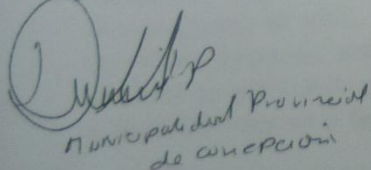 Municipalidad Provincial
de concepción